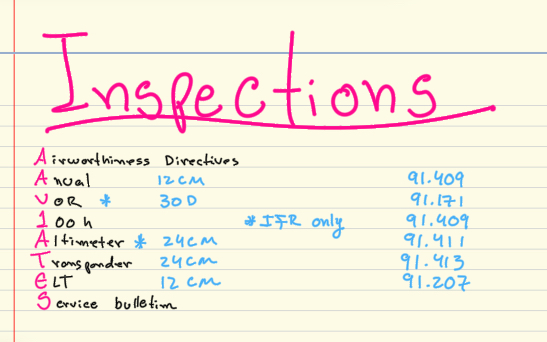 Inspections
Airworthiness Directives
Anual 12CM 91.409
VOR * 30D 91.171
100h *IFR only 91.409
Altimeter * 24CM 91.411
Transponder 24CM 91.413
ELT 12CM 91.207
Service bulletin